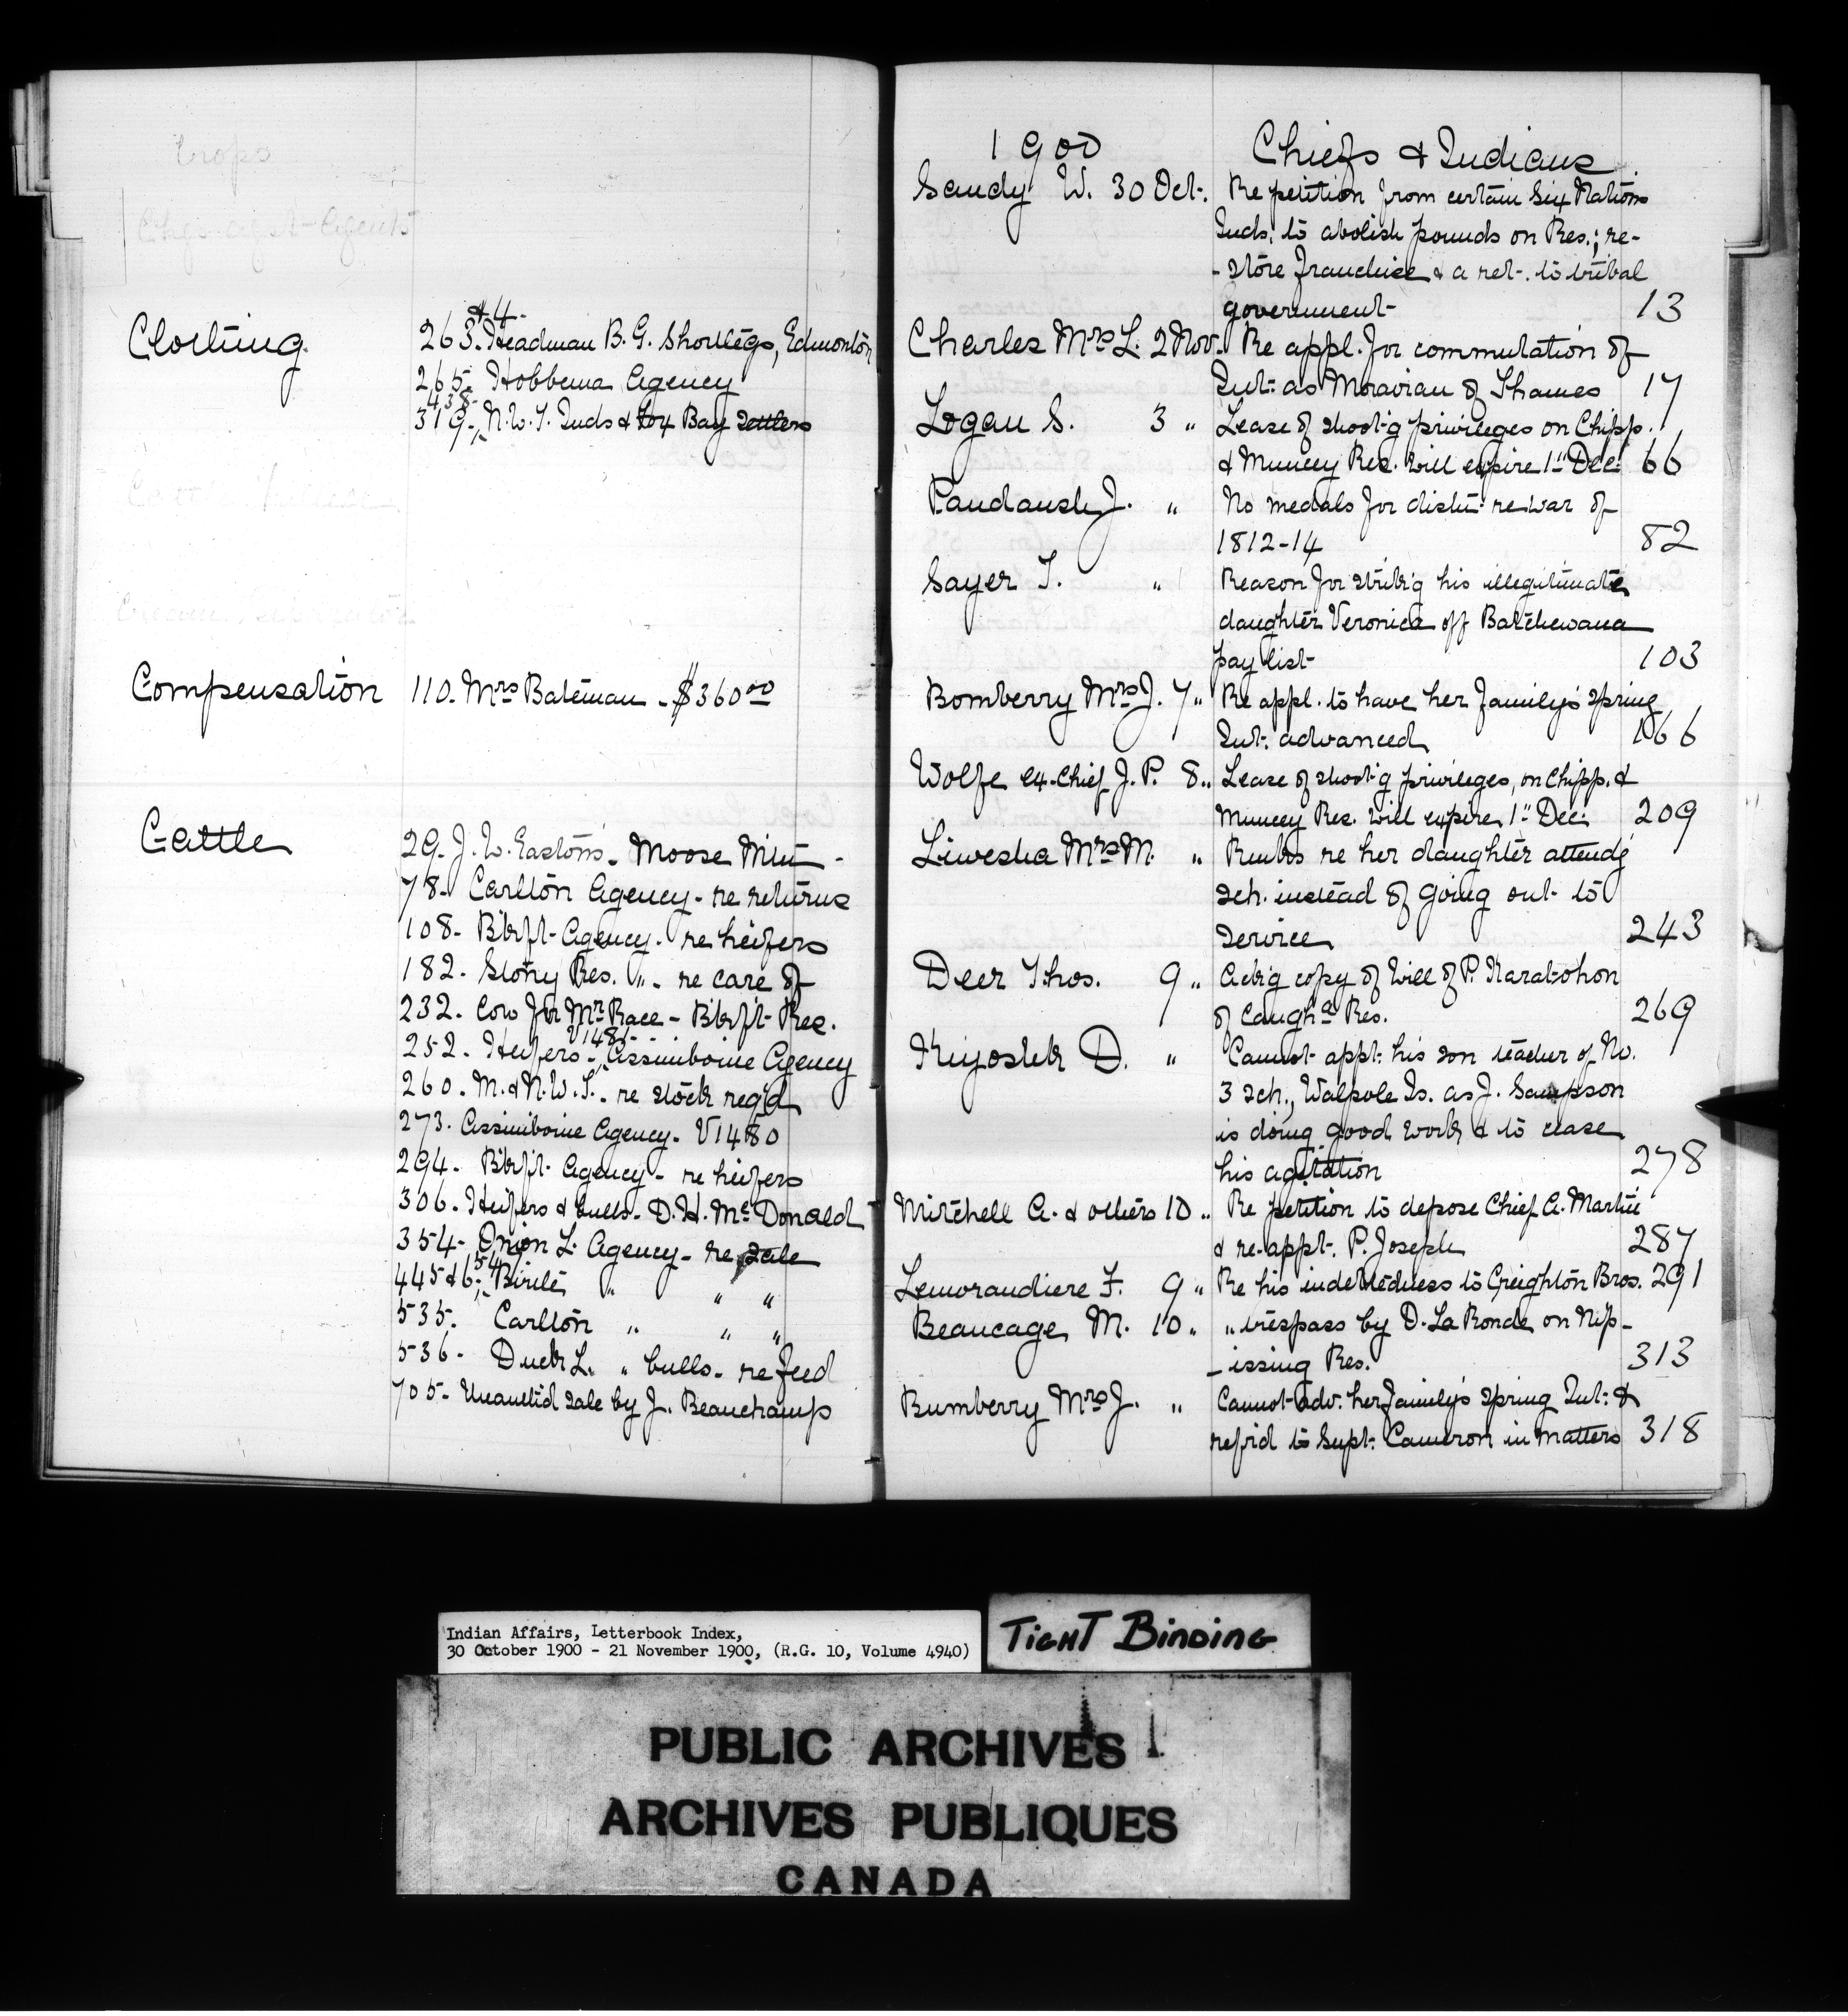 Clothing
& 4-
263. Headman B. G. Shortlegs, Edmonton
265. Hobbema Agency
438-
319-, N.W.T. Inds & Fox Bay Settlers
Compensation 110. Mrs Bateman - $360 00
Cattle
29. J. W. Easton's - Moose Mtn -
78- Carlton Agency - re returns
108- Bkft- Agency - re heifers
182. Stony Res. " - re care of
232. Cow for Mr Race - Bkft- Res.
V1485-
252. Heifers -, Assiniboine Agency
260. M. & N.W.T. - re stock reg'd
273. Assiniboine Agency - V1480
294- Bkft- Agency - re heifers
306. Heifers & bulls - D. H. McDonald
354- Onion L. Agency - re sale
54
445 & 6-, Birtle " " "
535. Carlton " " "
536- Duck L. " bulls - re feed
705- Unauth'd sale by J. Beauchamp
1900 Chiefs & Indians
Sandy W. 30 Oct. Re petition from certain Six Nations
Inds. to abolish pounds on Res.; re-
-store franchise & a ret. to tribal
government- 13
Charles Mrs L. 2 Nov. Re appl. for commutation of
Int: as Moravian of Thames 17
Logan S. 3 " Lease of shoot'g privileges on Chipp.
& Muncey Res. will expire 1st Dec: 66
Paudaush J. " No medals for distn: re war of
1812-14 82
Sayer T. " Reason for strik'g his illegitimate
daughter Veronica off Batchewana
pay list- 103
Bomberry Mrs J. 7 " Re appl. to have her family's spring
Int: advanced 166
Wolfe ex-Chief J. P. 8 " Lease of shoot'g privileges, on Chipp. &
Muncey Res. will expire 1st Dec: 209
Liwesha Mrs M. " Rmks re her daughter attend'g
sch. instead of going out to
service 243
Deer Thos. 9 " Ack'g copy of Will of P. Karatohon
of Caugh'a Res. 269
Kiyoshk D. " Cannot appt: his son teacher of No.
3 sch., Walpole Is. as J. Sampson
is doing good work & to cease
his agitation 278
Mitchell A. & others 10 " Re petition to depose Chief A. Martin
& re-appt. P. Joseph 287
Lemorandiere F. 9 " Re his indebtedness to Creighton Bros. 291
Beaucage M. 10 " " trespass by D. La Ronde on Nip-
-issing Res. 313
Bumberry Mrs J. " Cannot adv. her family's spring Int: &
ref'rd to Supt: Cameron in matters 318
Indian Affairs, Letterbook Index,
30 October 1900 - 21 November 1900, (R.G. 10, Volume 4940)
TIGHT BINDING
PUBLIC ARCHIVES
ARCHIVES PUBLIQUES
CANADA